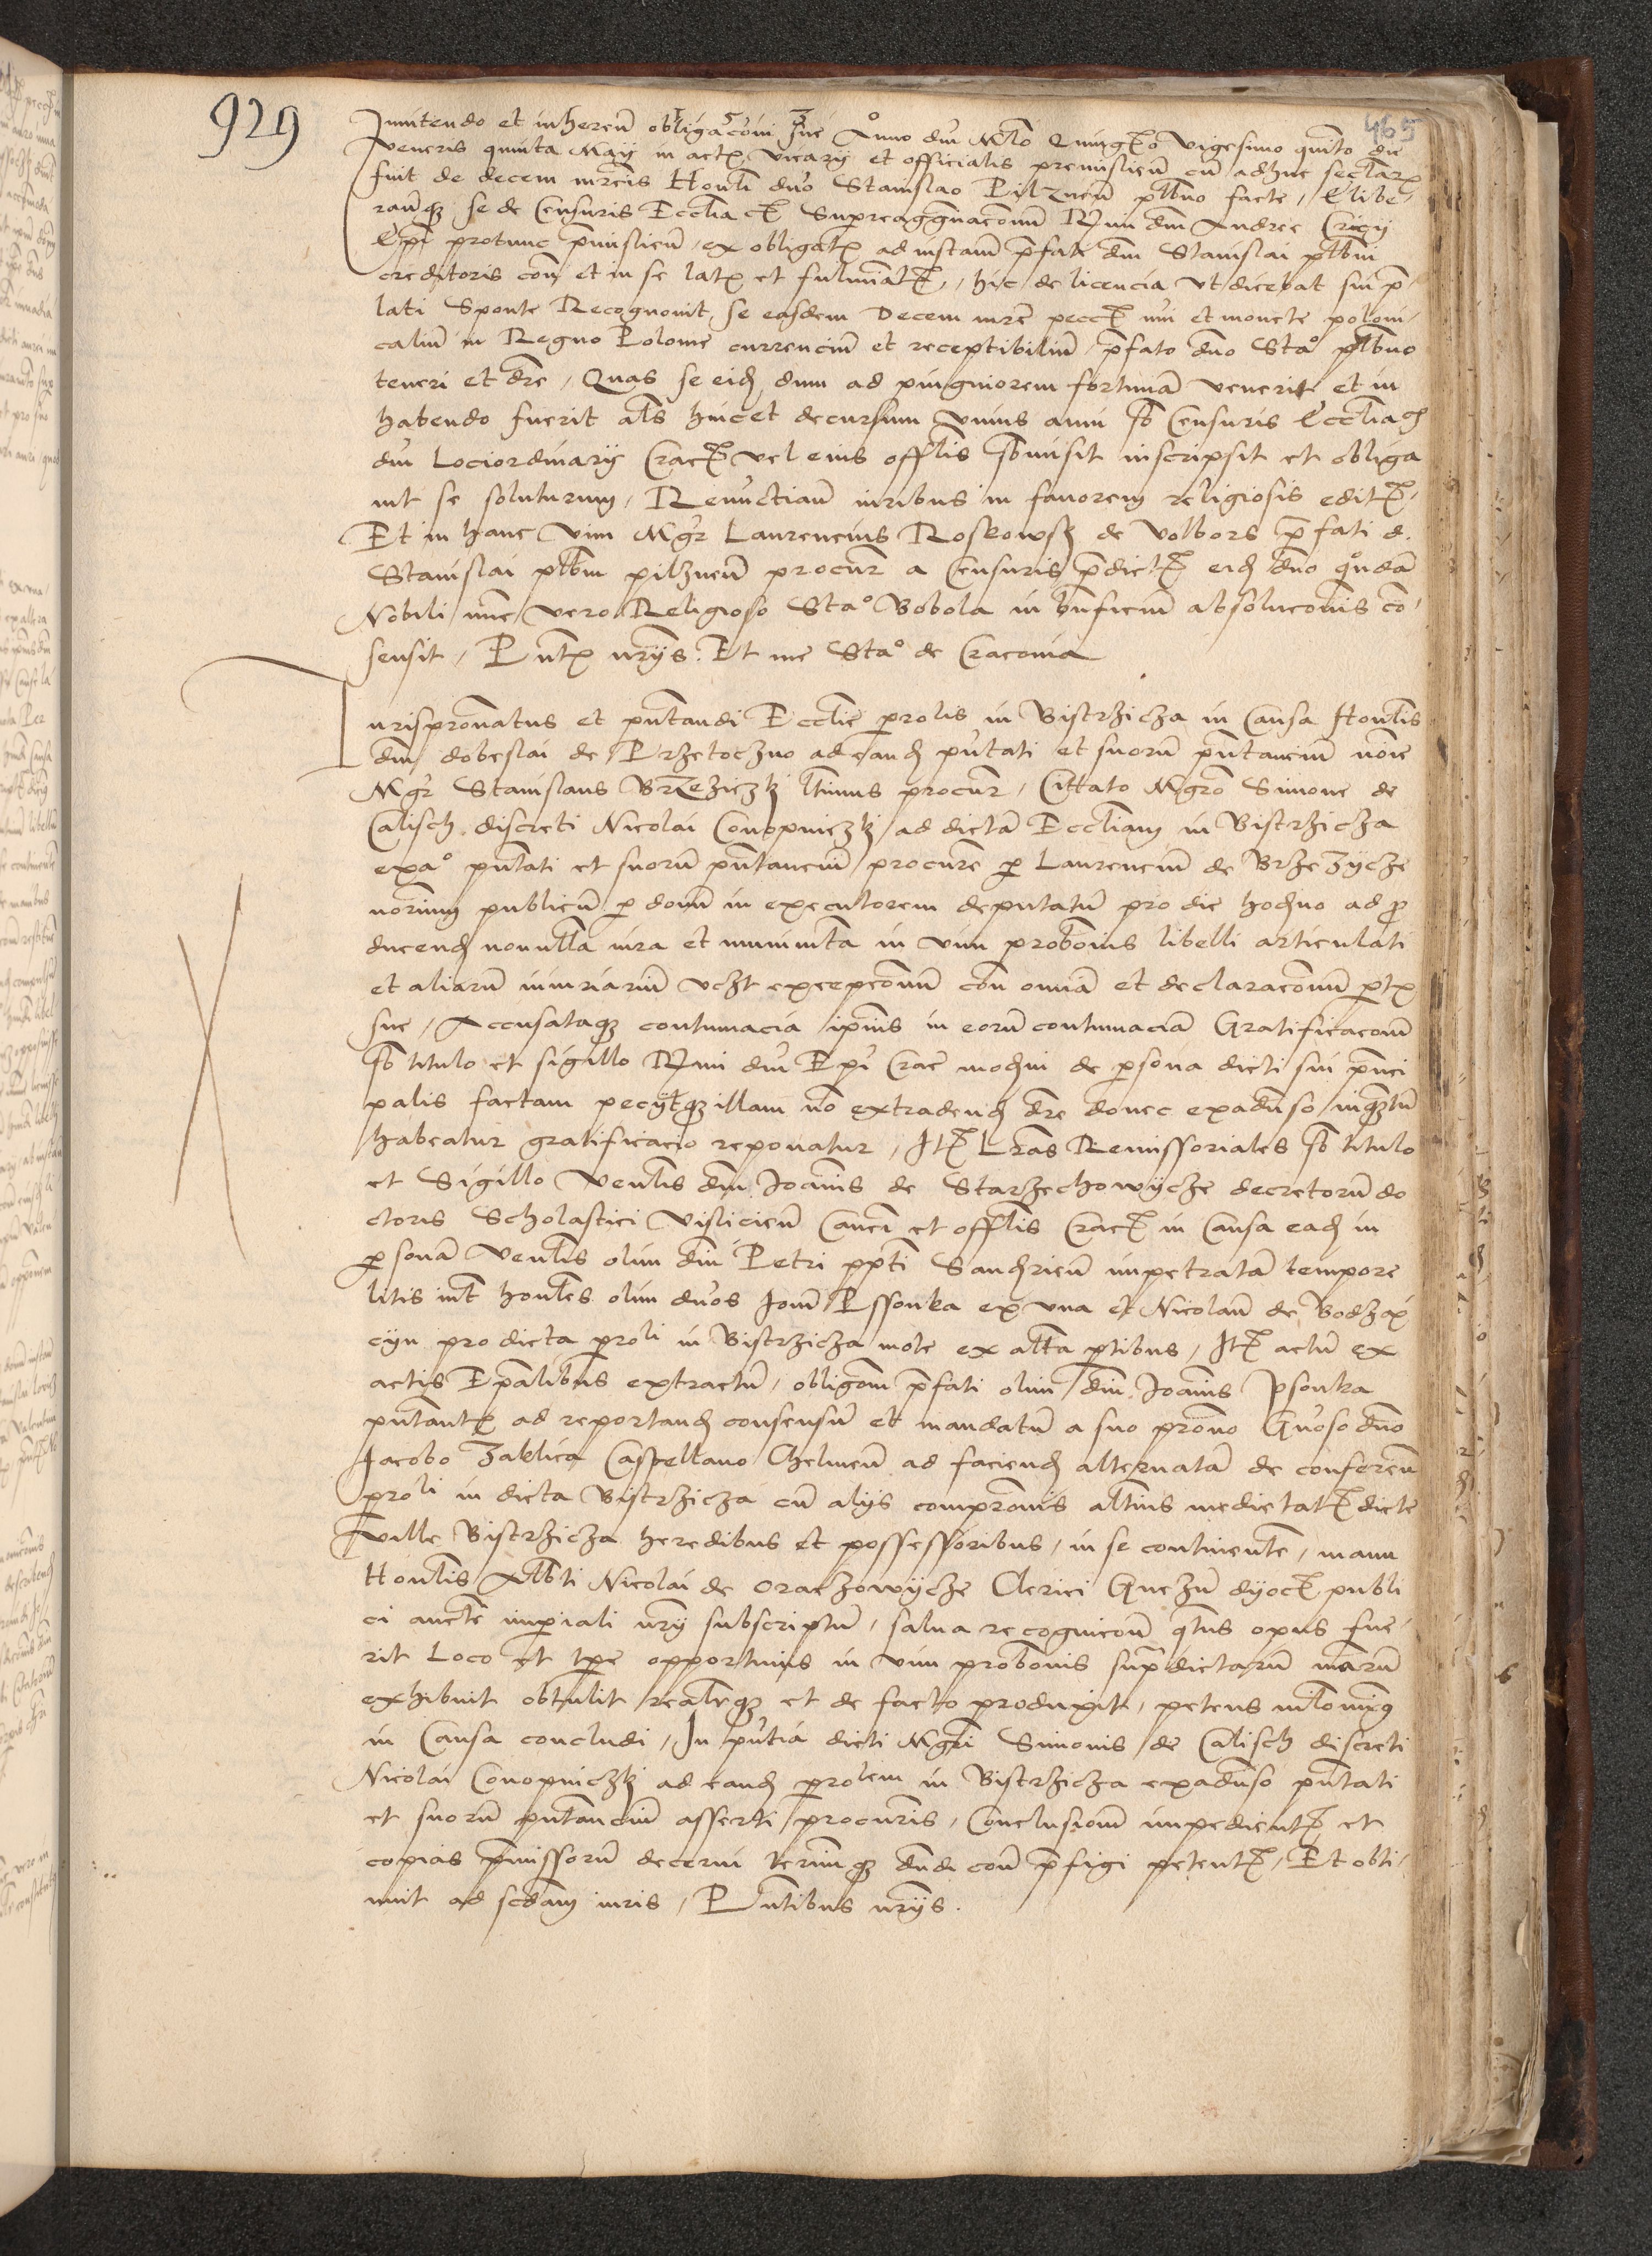 929
465
Innitendo et inheren obligacõni sue Anno dni Mlo Quingͭo vigesimo quinto die
veneris quinta Maij in actꝭ vicarij et officialis premislien cu adhuc seclarꝭ
fuit de decem mrcis Honli dno Stanislao Pilznen plbno facte, Elibe,
ranqꝫ se de Censuris Eccliacꝭ Supreaggrauaconu Rmi dni Andree Cricij
Epi protunc pmislien, ex obligatꝭ ad instam pfati dni Stanislai plbni
creditoris con et in se latꝭ et fulminatꝭ, hic de licencia vt dicebat sui p
lati Sponte Recognouit, se easdem Decem mrc pecc nui et monete poloni,
calium in Regno Polonie currenciu et receptibiliu, pfato dno Stao plbno
teneri et dre, Quas se eidꝫ dum ad pinguiorem fortuna venerit et in
habendo fuerit als hinc et decursum vnius anni sb Censuris Eccliacis
dni Lociordinarij Crac vel eius offlis sbmisit inscripsit et obliga
uit se soluturum, Renuctian iuribus in fauorem religiosis editꝭ,
Et in hanc vim Mgr Laurencius Roskowsky de Volbors pfati d.
Stanislai plbni pilznen procur a Censuris pdictꝭ eidꝫ dno quda
Nobili nuc vero Religioso Stao Bobola in bnficium absoluconis co,
sensit, Pntꝭ nrijs. Et me Stao de Cracouia
Iurispronatus et pntandi Ecclie prolis in Bistrzicza in Causa Honlis
dni dobeslai de Przetoczno ad eandꝫ pntati et suorum pntanciu noie
Mgr Stanislaus Brzeziczky ltimus procur, Cittato Mgro Simone de
Calisch discreti Nicolai Conopniczky ad dicta Eccliam in Bistrzicza
exao pntati et suoru pntanciu procure p Laurenciu de Brzezycze
norium publicu p donu in executorem deputatu pro die hodierno ad p
ducendꝫ nonulla iura et munimta in vim probonis libelli articulati
et aliaru iniuriariu vczt excepconu con omia et declaraconu ptꝭ
sue, Accusataqꝫ contumacia ipius in eoru contumacia Gratificaconu
sb titulo et sigillo Rmi dni Epi Crac moderni de psona dicti sui pnci
palis factam pecijtqꝫ illam no extradendꝫ dre donec exaduso inquatu
habeatur gratificacio reponatur, Itꝫ Lras Remissoriales sb titulo
et Sigillo venlis dni Joannis de Starzechowycze decretoru do
ctoris Scholastici vislicien Canci et offlis Crac in Causa eadꝫ in
psona venlis olim dni Petri ppti Sandꝫrien impetrata tempore
litis int honles olim dnos Joan Pssonka ex vna et Nicolau de Bodzan
cyn pro dicta proli in Bistrzicza mote ex alta ptibus, Itꝫ actu ex
actis Epalibus extractu, obligaom pfati olim dni Joannis Psonka
pntantꝭ ad reportandꝫ consensu et mandatu a suo prono Gnoso dno
Jacobo Zaklica Castellano Chelmen ad faciendꝫ alternata de conferen
proli in dicta Bistrzicza cu alijs compronis altius medietatꝭ dicte
ville Bistrzicza heredibus et possessoribus, in se continente, manu
Honlis Albti Nicolai de Oraczowycze Clerici Gneznen dyoc publi
ci aucte imperiali nrij subscriptu, salua recognicou qtus opus fue,
rit Loco et tpe opportunis in vim probonis supdictaru maru
exhibuit obtulit realrqꝫ et de facto produxit, petens nilominus
in Causa concludi, In pntia dicti Mgri Simonis de Calisch discreti
Nicolai Conopniczky ad eandꝫ prolem in Bistrzicza exaduso pntati
et suoru pntanciu asserti procuris, Conclusionu impedientꝭ et
copias pmissoru decerni terminqꝫ dndi con pfigi petentꝭ, Et obti,
nuit ad scdam iuris, Pntibus nrijs.